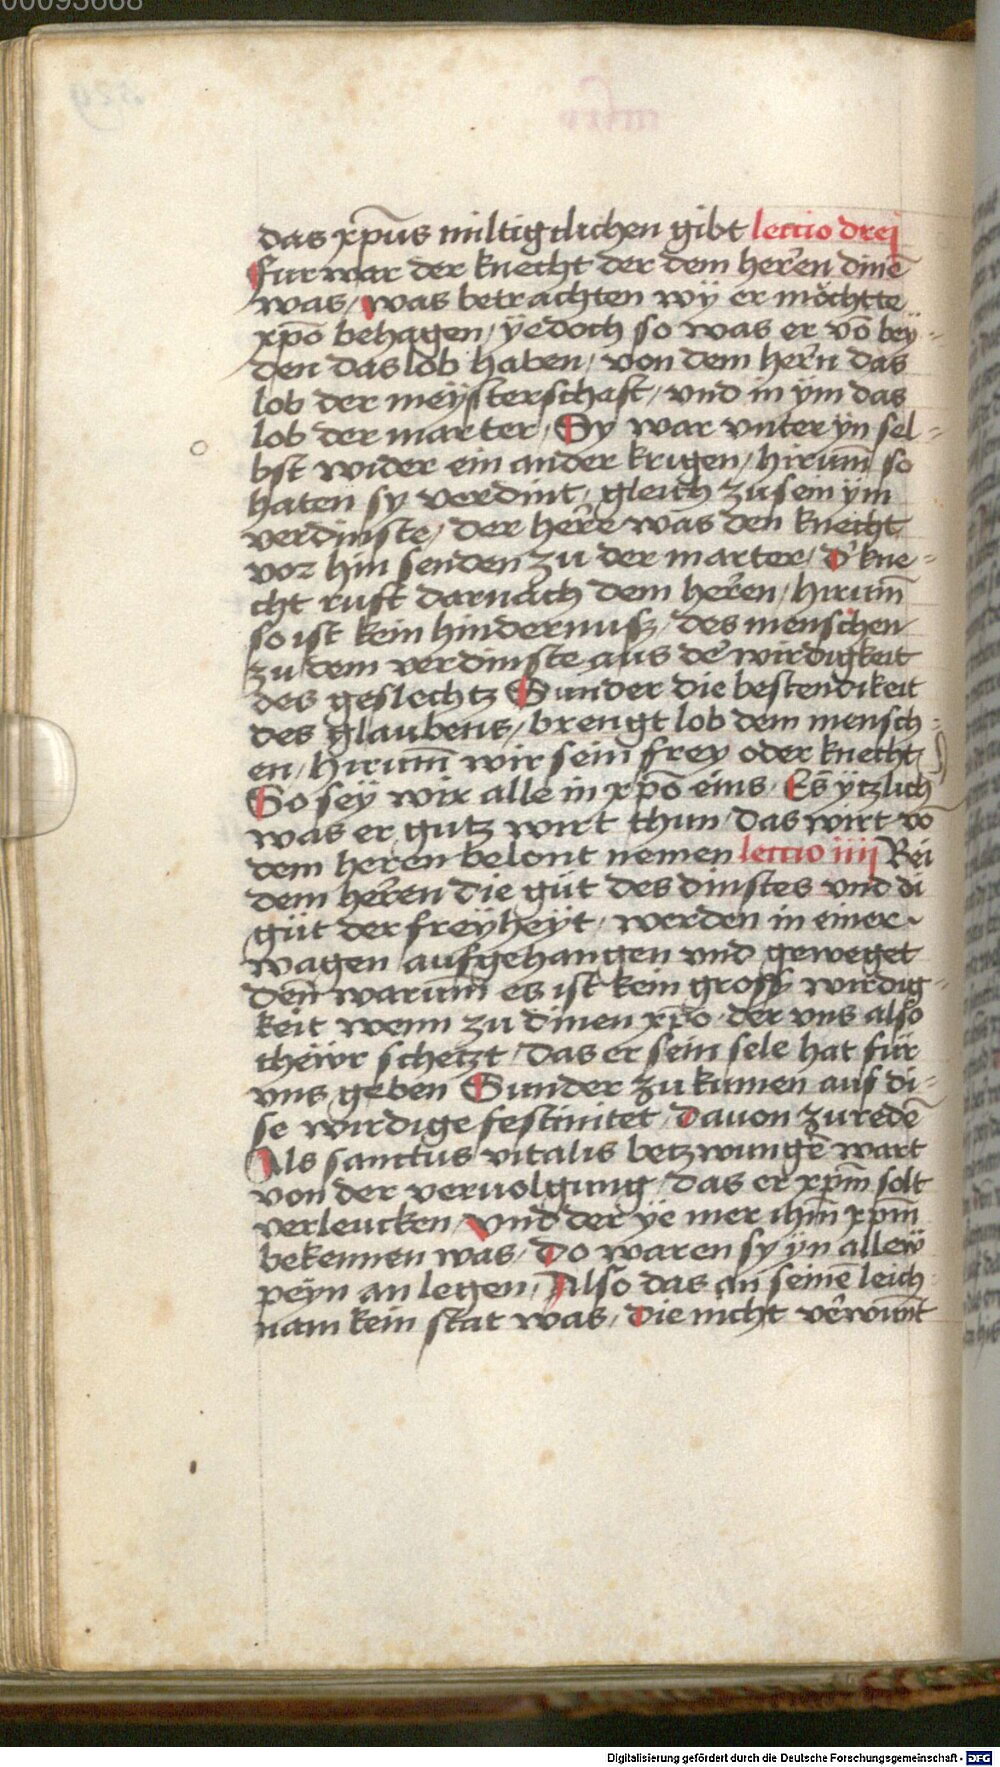 00093668
das xp̄us miltigtlichen gibt lectio drej
furwar der knecht der dem heren dinē
was / was betrachten wÿ er möchtte
xp̄o behagen / ÿedoch so was er vō beÿ-
den das lob haben / von dem hern das
lob der meÿsterschaft / vnd in ÿm das
lob der marter / Sy war vnter ÿn sel-
bst wider ein ander krigen / hirum̄ so
haten sy verdint / gleich zu sein ÿm
verdinste / der here was den knecht
vor hin senden zu der marter / d' kne-
cht ruft darnach dem heren / hirum̄
so ist kein hindernusz / des menschen
zu dem verdinste aus de' wirdigkeit
des geslechtz Sunder die bestendikeit
des glaubens / brengt lob dem mensch-
en / hirum̄ wir sein frey oder knecht
So seÿ wir alle in xp̄o eins / Es ÿtzlich
was er gutz wirt thun / das wirt vō
dem heren belont nemen lectio iiij Bei
dem heren die güt des dinstes vnd di
güt der freÿheÿt / werden in einer
wagen aufgehangen vnd geweget
den̄ warum̄ es ist kein gross wirdig-
keit wenn zu dinen xp̄o / der vns also
theẅr schetzt / das er sein sele hat für
vns geben Sunder zu kumen auf di-
se wirdige festinitet / Dauon zu redē
Als sanctus vitalis betzwungē wart
von der veruolgung / das er xp̄m solt
verleucken / vnd der ÿe mer ihm̄ xp̄m
bekennen was / Do waren sy ÿn alleẅ
peÿn an legen / Also das an seinē leich
nam kein stat was / Die nicht verwun̄t
Digitalisierung gefördert durch die Deutsche Forschungsgemeinschaft - DFG